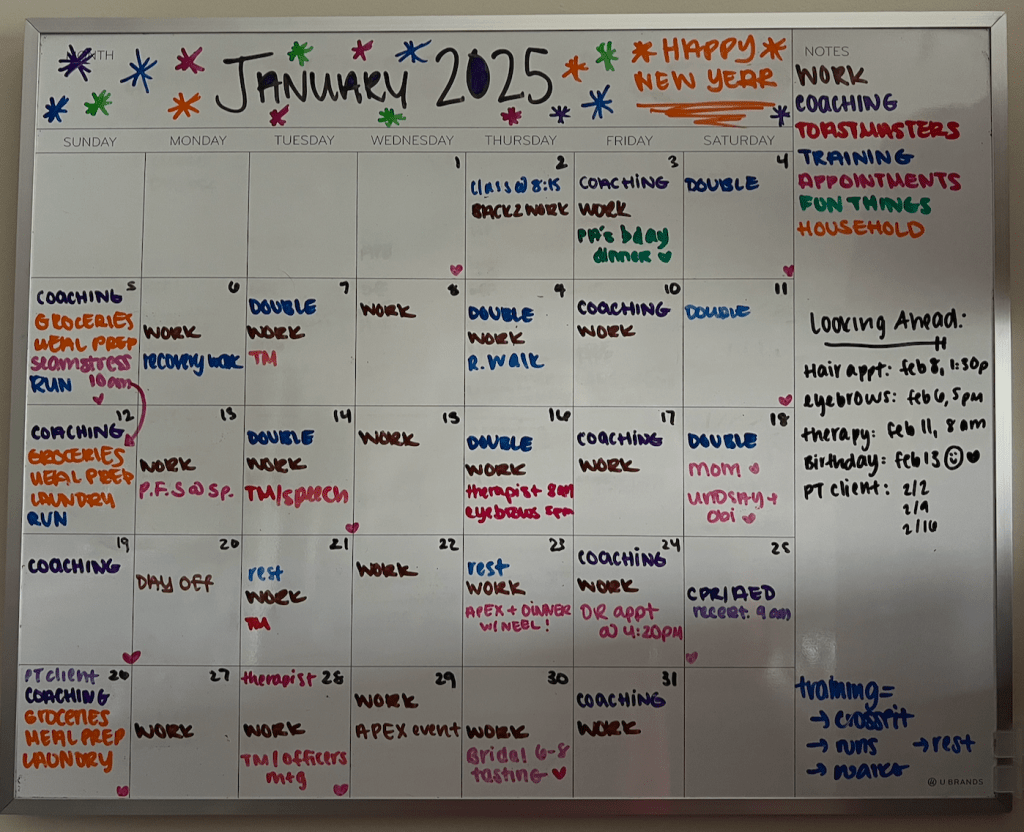 MONTH
JANUARY 2025
*HAPPY*
NEW YEAR
SUNDAY MONDAY TUESDAY WEDNESDAY THURSDAY FRIDAY SATURDAY
1
2
Class @ 8:15
BACK 2 WORK
3
COACHING
WORK
PA's bday
dinner
4
DOUBLE
5
COACHING
GROCERIES
MEAL PREP
seamstress
RUN 10am
6
WORK
recovery walk
7
DOUBLE
WORK
TM
8
WORK
9
DOUBLE
WORK
R. Walk
10
COACHING
WORK
11
DOUBLE
12
COACHING
GROCERIES
MEAL PREP
LAUNDRY
RUN
13
WORK
P.F.S @ 5p.
14
DOUBLE
WORK
TM/speech
15
WORK
16
DOUBLE
WORK
therapist 8am
eyebrows 5pm
17
COACHING
WORK
18
DOUBLE
mom
LINDSAY +
Obi
19
COACHING
20
DAY OFF
21
rest
WORK
TM
22
WORK
23
rest
WORK
APEX + DINNER
W/ NEEL!
24
COACHING
WORK
DR appt
@ 4:20PM
25
CPR/AED
recert. 9am
26
PT client
COACHING
GROCERIES
MEAL PREP
LAUNDRY
27
WORK
28
therapist
WORK
TM/officers
mtg
29
WORK
APEX event
30
WORK
Bridal 6-8
tasting
31
COACHING
WORK
NOTES
WORK
COACHING
TOASTMASTERS
TRAINING
APPOINTMENTS
FUN THINGS
HOUSEHOLD
Looking Ahead:
Hair appt: feb 8, 1:30p
eyebrows: feb 6, 5pm
therapy: feb 11, 8am
Birthday: feb 13
PT client: 2/2
2/9
2/16
training=
→ crossfit
→ runs → rest
→ walks
U BRANDS